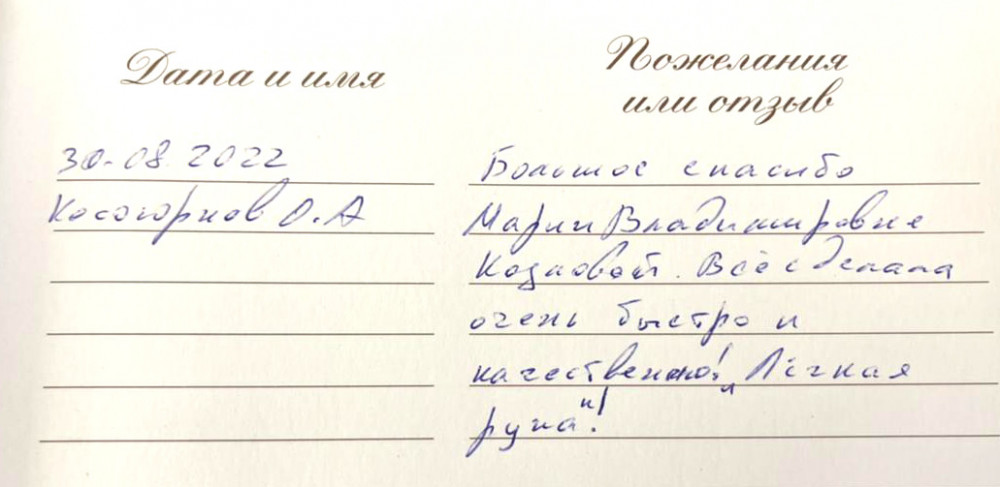 Дата и имя
30.08.2022
Косогорнов О.А
Пожелания
или отзыв
Большое спасибо
Марии Владимировне
Козловой. Всё сделала
очень быстро и
качественно! "Лёгкая
рука"!